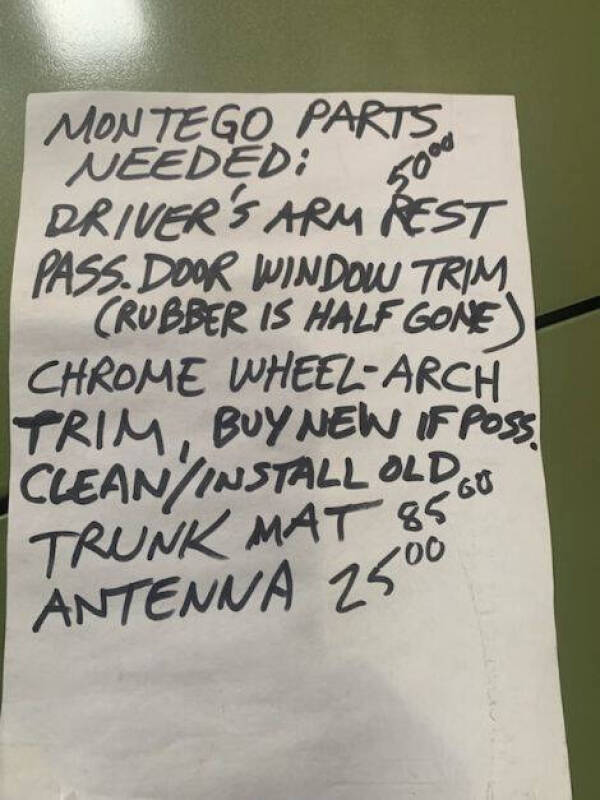 MONTEGO PARTS
NEEDED:
50⁰⁰
DRIVER'S ARM REST
PASS. DOOR WINDOW TRIM
(RUBBER IS HALF GONE)
CHROME WHEEL-ARCH
TRIM, BUY NEW IF POSS.
CLEAN/INSTALL OLD
TRUNK MAT 85⁰⁰
ANTENNA 25⁰⁰